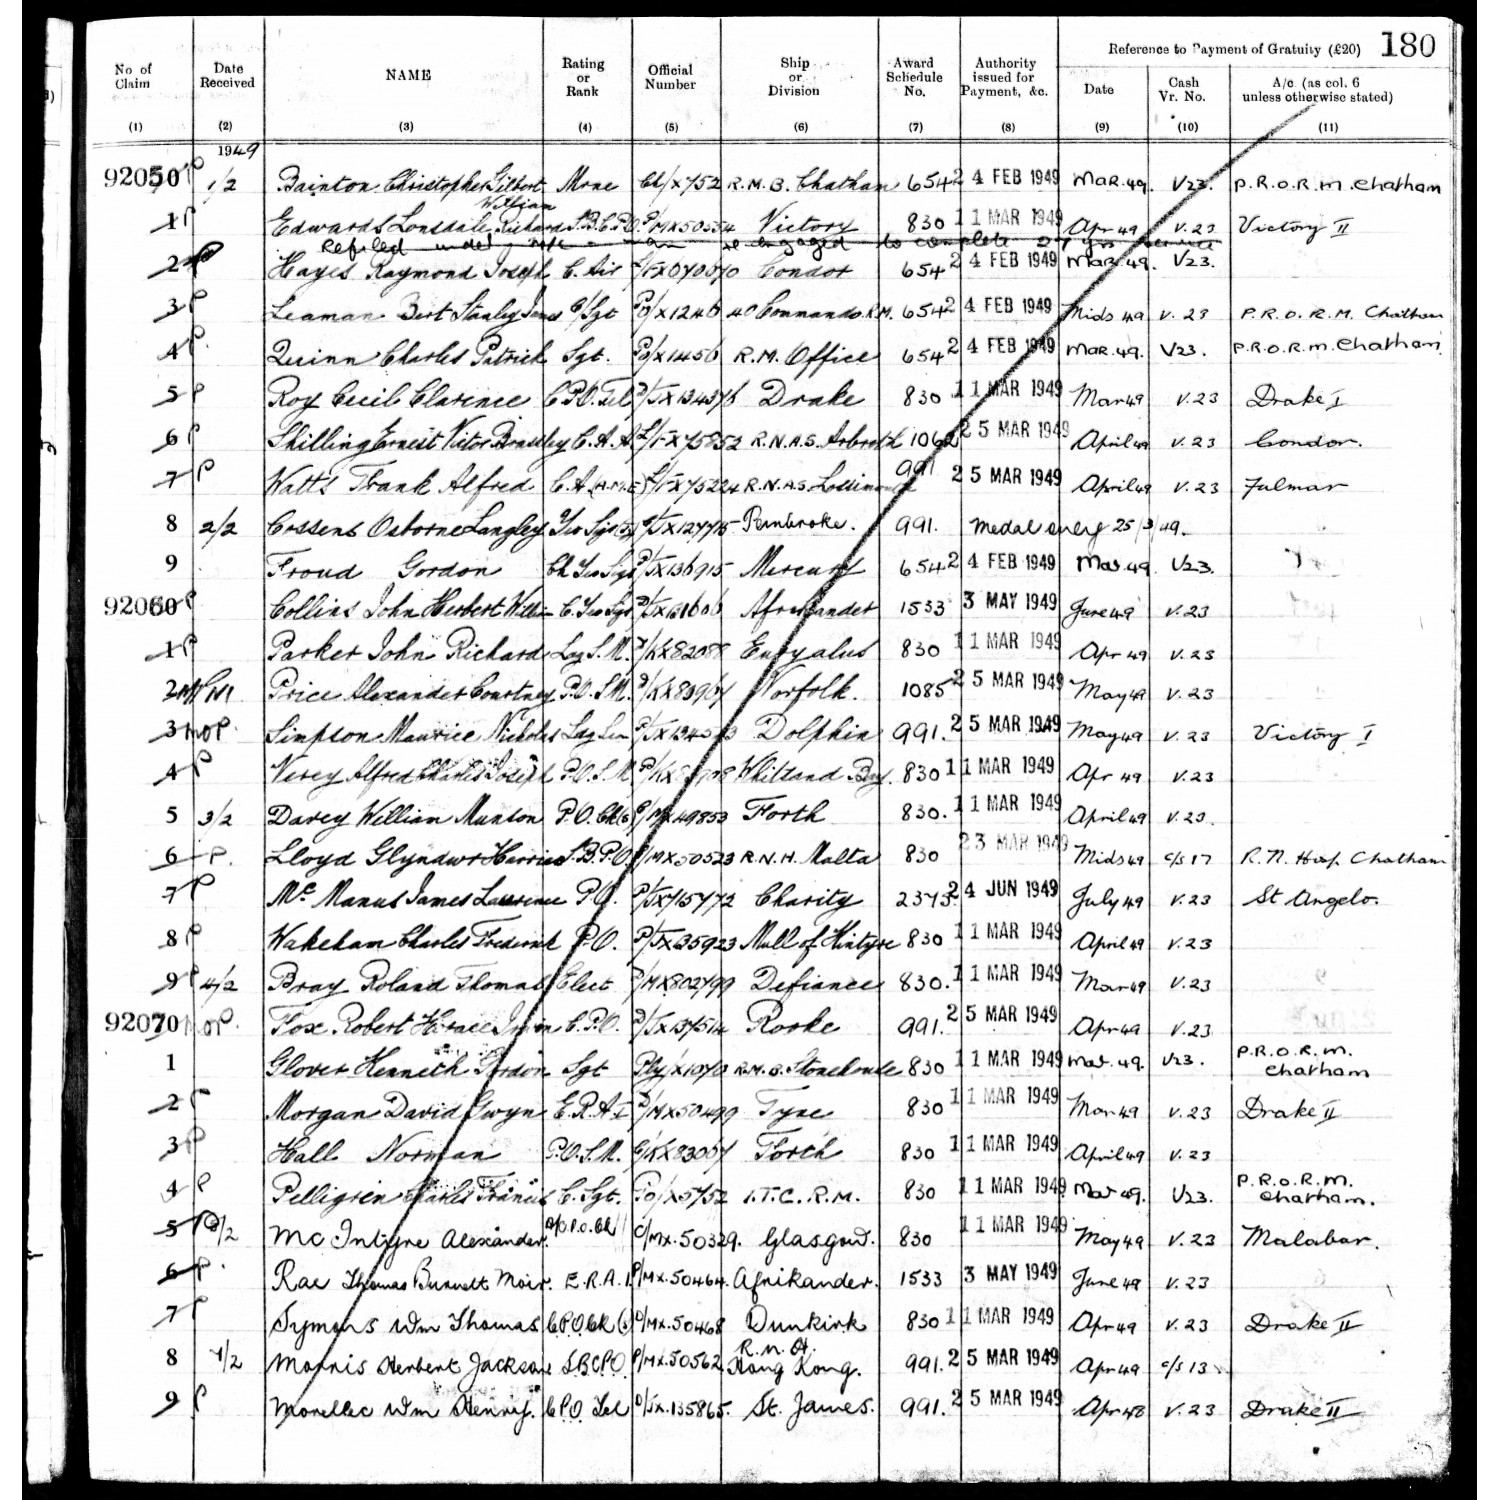 Reference to Payment of Gratuity (£20) 180
No of Claim Date Received NAME Rating or Rank Official Number Ship or Division Award Schedule No. Authority issued for Payment, &c. Date Cash Vr. No. A/c. (as col. 6 unless otherwise stated)
(1) (2) (3) (4) (5) (6) (7) (8) (9) (10) (11)
1949
92050 P 1/2 Bainton Christopher Gilbert Mrne Ch/X752 R.M.B. Chatham 654 24 FEB 1949 Mar. 49. V23. P.R.O.R.M. Chatham
William
1 P Edwards Lonsdale Richard S.B.C.P.O. P/MX50554 Victory 830 11 MAR 1949 Apr 49 V.23 Victory II
Refiled under re engaged to complete
2 P Hayes Raymond Joseph C. Air Condor 654 24 FEB 1949 Mar. 49. V23.
3 P Leaman Bert Stanley James C/Sgt Po/X1246 40 Commando R.M. 654 24 FEB 1949 Mids 49 V. 23 P.R.O.R.M. Chatham
4 P Quinn Charles Patrick Sgt. Po/X1456 R.M. Office 654 24 FEB 1949 Mar. 49. V23. P.R.O.R.M. Chatham.
5 P Roy Cecil Clarence C.P.O. Tel D/JX134376 Drake 830 11 MAR 1949 Mar 49 V.23 Drake I
6 P Shilling Ernest Victor C.A.A. L/FX75852 R.N.A.S. Arbroath 1062 25 MAR 1949 April 49 V.23 Condor.
7 P Watts Frank Alfred C.A. L/FX75224 R.N.A.S. Lossimouth 991 25 MAR 1949 April 49 V.23 Fulmar
8 2/2 Cossens Osborne Langley Yeo Sigs C/JX127715 Pembroke. 991. Medal only 25/3/49.
9 Froud Gordon Ch Yeo Sigs P/JX136915 Mercury 654 24 FEB 1949 Mar 49. V23.
92060 P Collins John Herbert William C. Yeo Sigs P/JX131606 Afrikander 1533 3 MAY 1949 June 49 V.23
1 P Parker John Richard Ldg S.M. P/KX82088 Euryalus 830 11 MAR 1949 Apr 49 V.23
2 Price Alexander Courtney P.O.S.M. P/KX83967 Norfolk. 1085 25 MAR 1949 May 49 V.23
3 Simpson Maurice Nicholas Ldg Sea Dolphin 991. 25 MAR 1949 May 49 V. 23 Victory I
4 P Verey Alfred Charles Joseph P.O.S.M Whitsand Bay. 830 11 MAR 1949 Apr 49 V.23
5 3/2 Davey William Munton P.O. Ck (s) C/MX49853 Forth 830. 11 MAR 1949 April 49 V.23.
6 P. Lloyd Glyndwr Harries S.B.P.O. P/MX50523 R.N.H. Malta 830 23 MAR 1949 Mids 49 c/s 17 R.N. Hosp. Chatham
7 P Mc Manus James Lawrence P.O. P/JX715772 Charity 2373. 24 JUN 1949 July 49 V.23 St Angelo.
8 P Wakeham Charles Frederick P.O. P/JX135923 Mull of Kintyre 830 11 MAR 1949 April 49 V.23
9 P 4/2 Bray Roland Thomas Elect P/MX802799 Defiance 830. 11 MAR 1949 Mar 49 V.23
92070 OP. Fox Robert Horace Irwin C.P.O. D/JX137514 Rooke 991. 25 MAR 1949 Apr 49 V.23
1 Glover Kenneth Gordon Sgt Ply/X1070 R.M.B. Stonehouse 830 11 MAR 1949 Mar. 49. V23. P.R.O.R.M. Chatham
2 P Morgan David Gwyn E.R.A. I D/MX50499 Tyne 830 11 MAR 1949 Mar 49 V.23 Drake II
3 P Hall Norman P.O.S.M. C/KX83067 Forth 830 11 MAR 1949 April 49 V.23
4 P Pelligrin Charles Francis C. Sgt. Po/X5752 I.T.C. R.M. 830 11 MAR 1949 Mar 49. V23. P.R.O.R.M. Chatham.
5 P Mc Intyre Alexander. C/MX.50329. Glasgow. 830 11 MAR 1949 May 49 V.23 Malabar.
6 P. Rae Thomas Burnett Moir. E.R.A. 1. P/MX.50464. Afrikander. 1533 3 MAY 1949 June 49 V.23
7 P Symons Wm Thomas C.P.O. Ck (s) D/MX.50468 Dunkirk 830 11 MAR 1949 Apr 49 V.23 Drake II
8 7/2 Morris Herbert Jackson S.B.C.P.O. P/MX.50562. R.N.H. Hong Kong. 991. 25 MAR 1949 Apr 49 c/s 13
9 P Morellec Wm Henry. C.P.O. Tel D/JX.135865. St. James. 991. 25 MAR 1949 Apr 48 V.23 Drake II